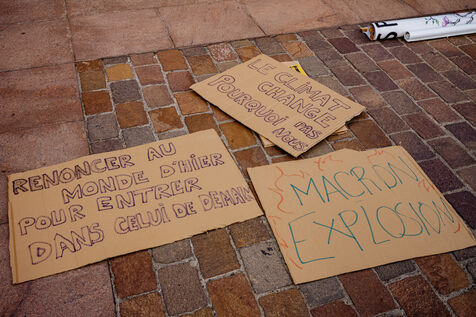 LE CLIMAT
CHANGE
POURQUOI PAS
NOUS
RENONCER AU
MONDE D'HIER
POUR ENTRER
DANS CELUI DE DEMAIN
MACRON
EXPLOSION